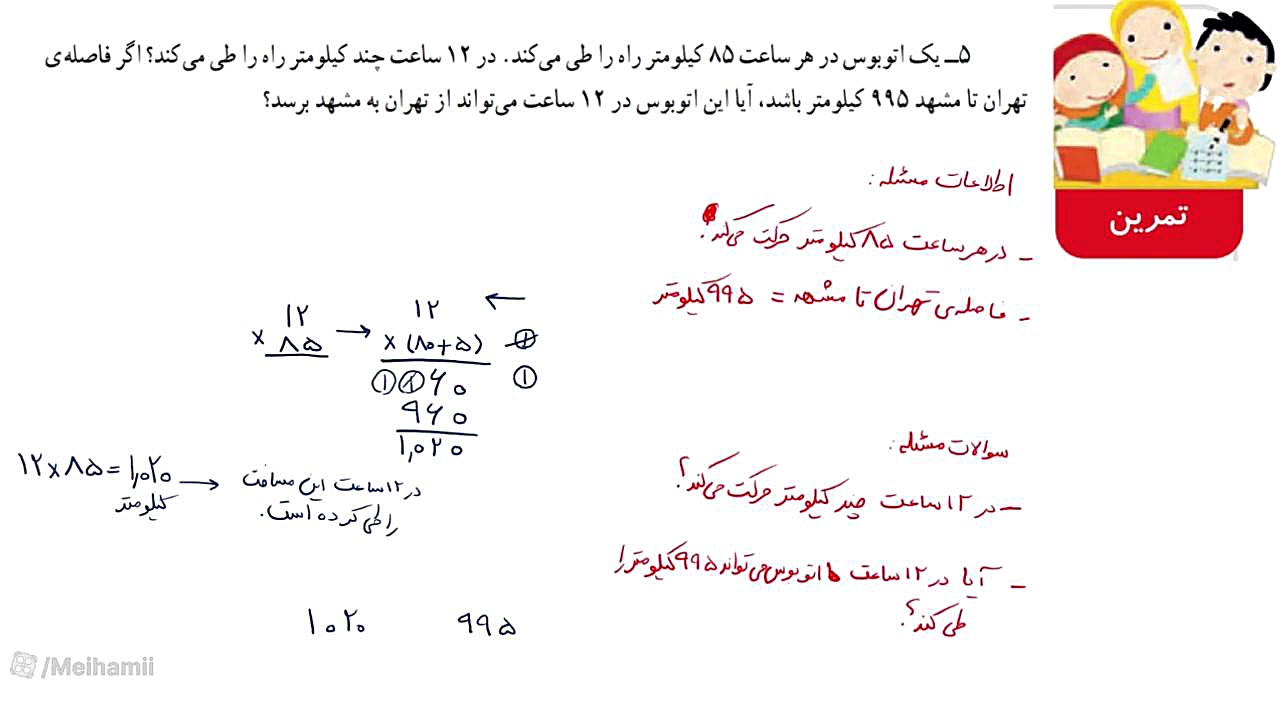 ۵ــ یک اتوبوس در هر ساعت ۸۵ کیلومتر راه را طی می‌کند. در ۱۲ ساعت چند کیلومتر راه را طی می‌کند؟ اگر فاصله‌ی
تهران تا مشهد ۹۹۵ کیلومتر باشد، آیا این اتوبوس در ۱۲ ساعت می‌تواند از تهران به مشهد برسد؟
تمرین
اطلاعات مسئله:
- در هر ساعت ۸۵ کیلومتر حرکت می‌کند.
- فاصله‌ی تهران تا مشهد = ۹۹۵ کیلومتر
۱۲
× ۸۵
→
۱۲
←
× (۸۰+۵)
①
①①۶۰
۹۶۰
۱,۰۲۰
۱۲ × ۸۵ = ۱,۰۲۰ →
کیلومتر
در ۱۲ ساعت این مسافت
را طی کرده است.
سوالات مسئله:
- در ۱۲ ساعت چند کیلومتر حرکت می‌کند؟
- آیا در ۱۲ ساعت اتوبوس می‌تواند ۹۹۵ کیلومتر را
طی کند؟
۱۰۲۰ ۹۹۵
/Meihamii